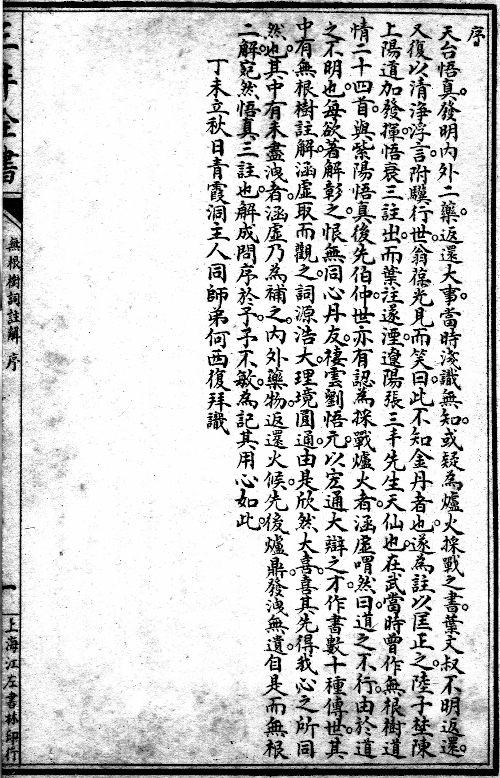 序
天台悟真發明內外二藥返還大事當時淺識無知或疑為爐火採戰之書葉文叔不明返還
又復以清淨浮言附驥行世翁葆光見而笑曰此不知金丹者也遂為註以匡正之陸子埜陳
上陽道加發揮悟哀三註出而葉註遂湮遼陽張三丰先生天仙也在武當時曾作無根樹道
情二十四首與紫陽悟真後先伯仲世亦有認為採戰爐火者涵虛喟然曰道之不行由於道
之不明也每欲著解彰之恨無同心丹友棲雲劉悟元以宏通大辯之才作書數十種傳世其
中有無根樹註解涵虛取而觀之詞源浩大理境圓通由是欣然大喜喜其先得我心之所同
然也其中有未盡洩者涵虛乃為補之內外藥物返還火候先後爐鼎發洩無遺自是而無根
二解宛然悟真三註也解成問序於予予不敏為記其用心如此
丁未立秋日青霞洞主人同師弟何西復拜識
三丰全書
無根樹詞註解 序
一
上海江左書林印行